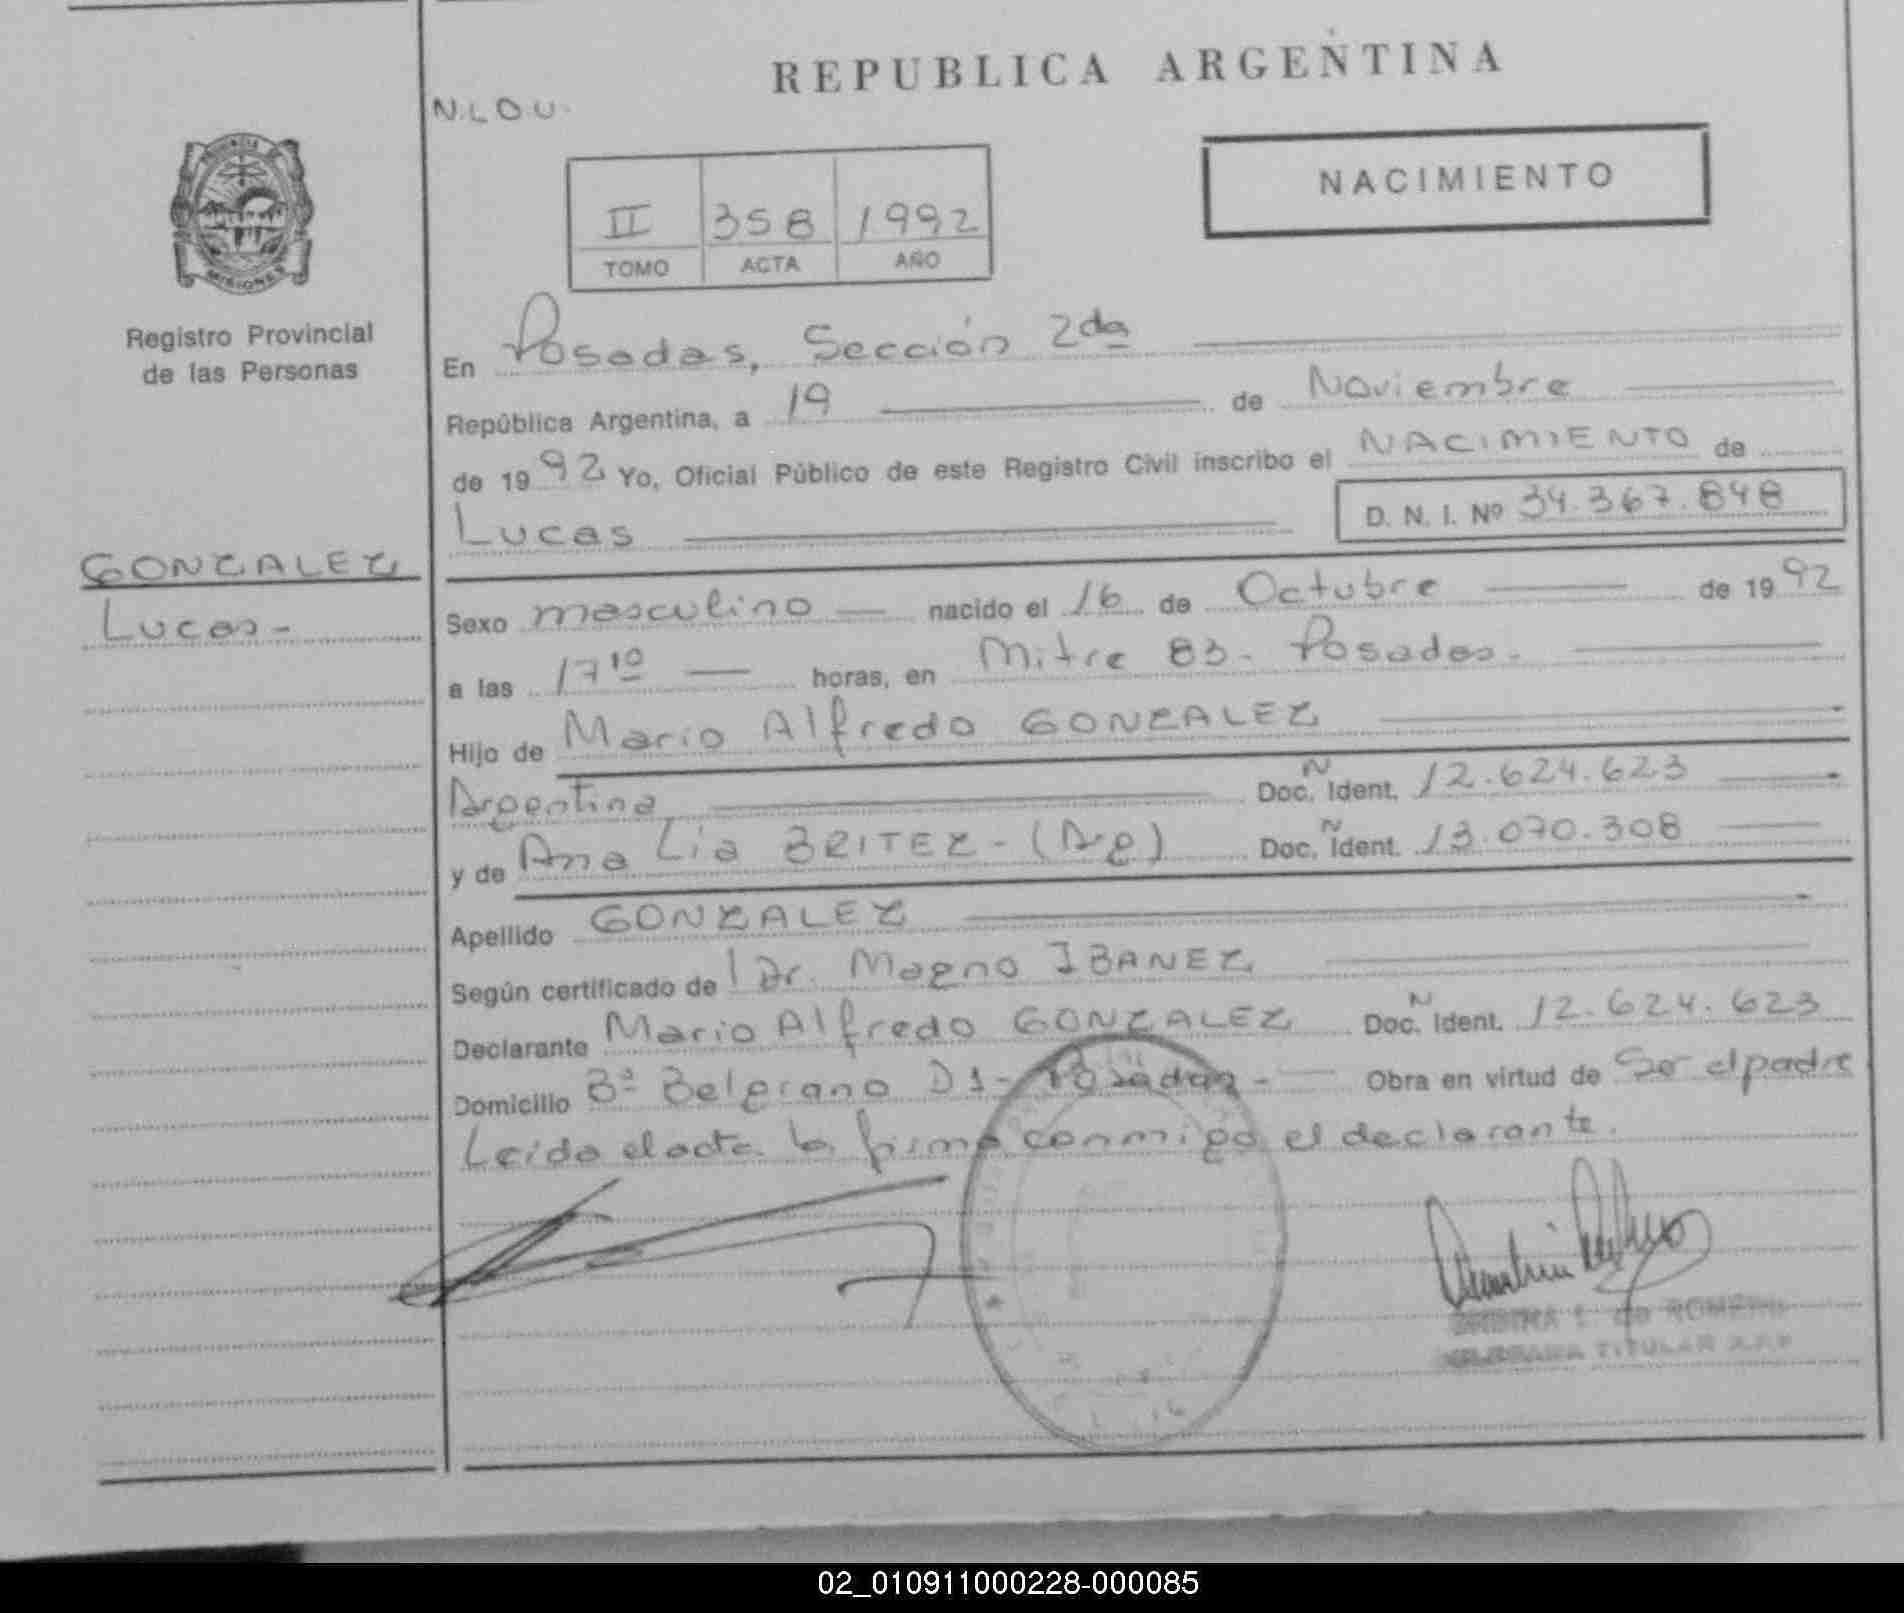 REPUBLICA ARGENTINA
N.L.O.U.
NACIMIENTO
II 358 1992
TOMO ACTA AÑO
PROVINCIA DE
MISIONES
Registro Provincial
de las Personas
GONZALEZ
Lucas-
En Posadas, Sección 2da
República Argentina, a 19 de Noviembre
de 1992 Yo, Oficial Público de este Registro Civil inscribo el NACIMIENTO de
Lucas D. N. I. Nº 34.367.848
Sexo masculino nacido el 16 de Octubre de 1992
a las 17 10 horas, en Mitre 83- Posadas.
Hijo de Mario Alfredo GONZALEZ
Argentina Doc. N Ident. 12.624.623
y de Ana Lia BRITEZ - (Arg) Doc. N Ident. 13.070.308
Apellido GONZALEZ
Según certificado de l Dr. Magno IBANEZ
Declarante Mario Alfredo GONZALEZ Doc. N Ident. 12.624.623
Domicilio Bº Belgrano D1- Posadas- Obra en virtud de Ser el padre
Leida el acta la firma conmigo el declarante.
ROMERO
TITULAR
02_010911000228-000085